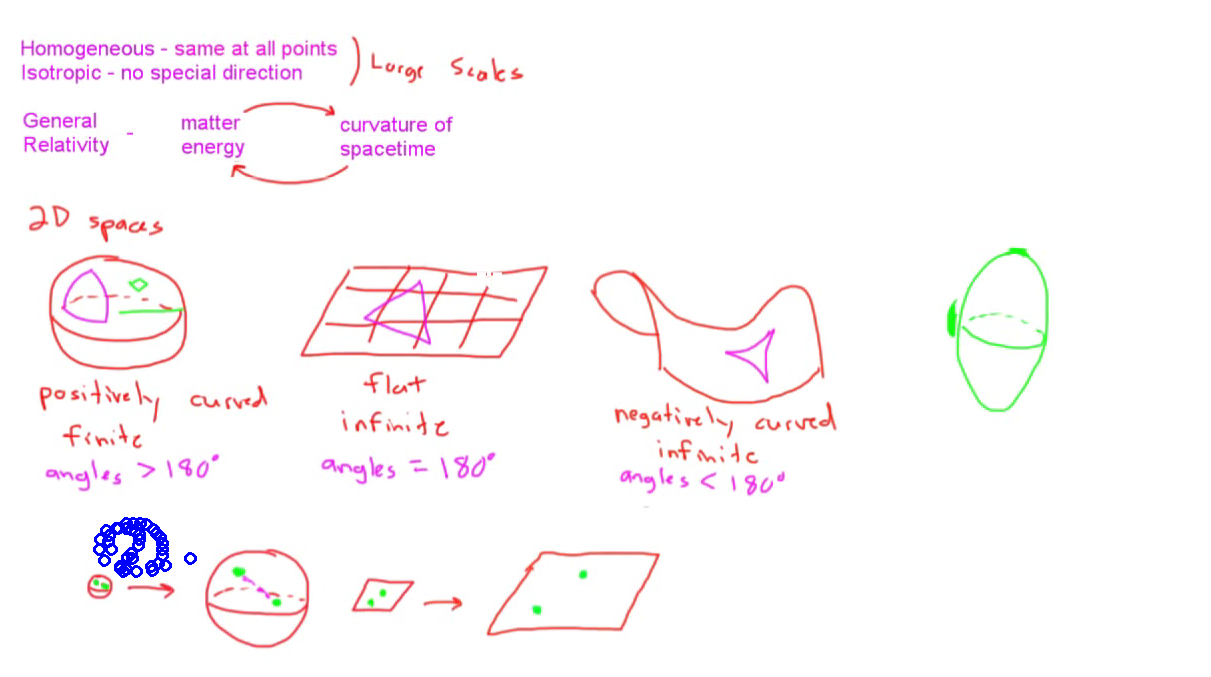 Homogeneous - same at all points
Isotropic - no special direction
Large Scales
General Relativity -
matter energy
curvature of spacetime
2D spaces
positively curved
finite
angles > 180°
flat
infinite
angles = 180°
negatively curved
infinite
angles < 180°